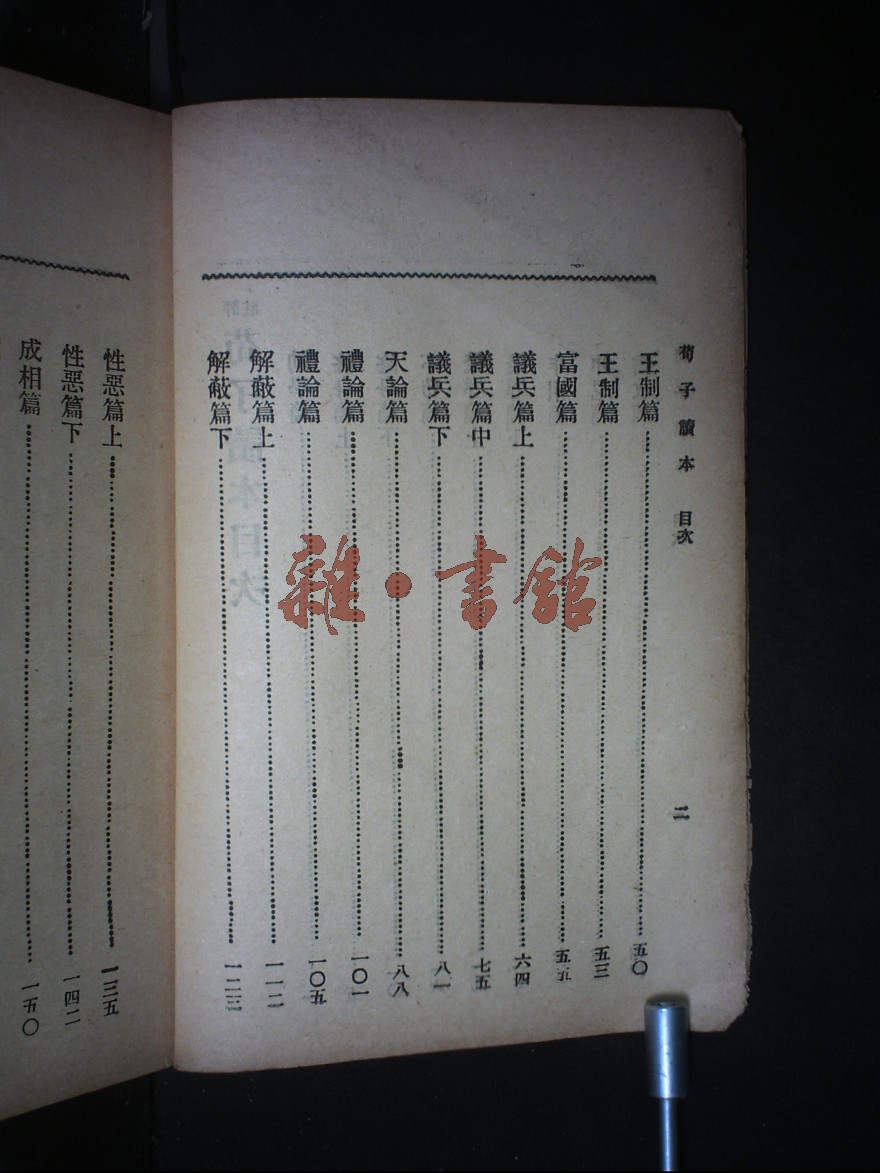 荀子讀本 目次 二
王制篇……五〇
王制篇……五三
富國篇……五五
議兵篇上……六四
議兵篇中……七五
議兵篇下……八一
天論篇……八八
禮論篇……一〇一
禮論篇……一〇五
解蔽篇上……一一二
解蔽篇下……一二三
性惡篇上……一三五
性惡篇下……一四二
成相篇……一五〇
雜·書館